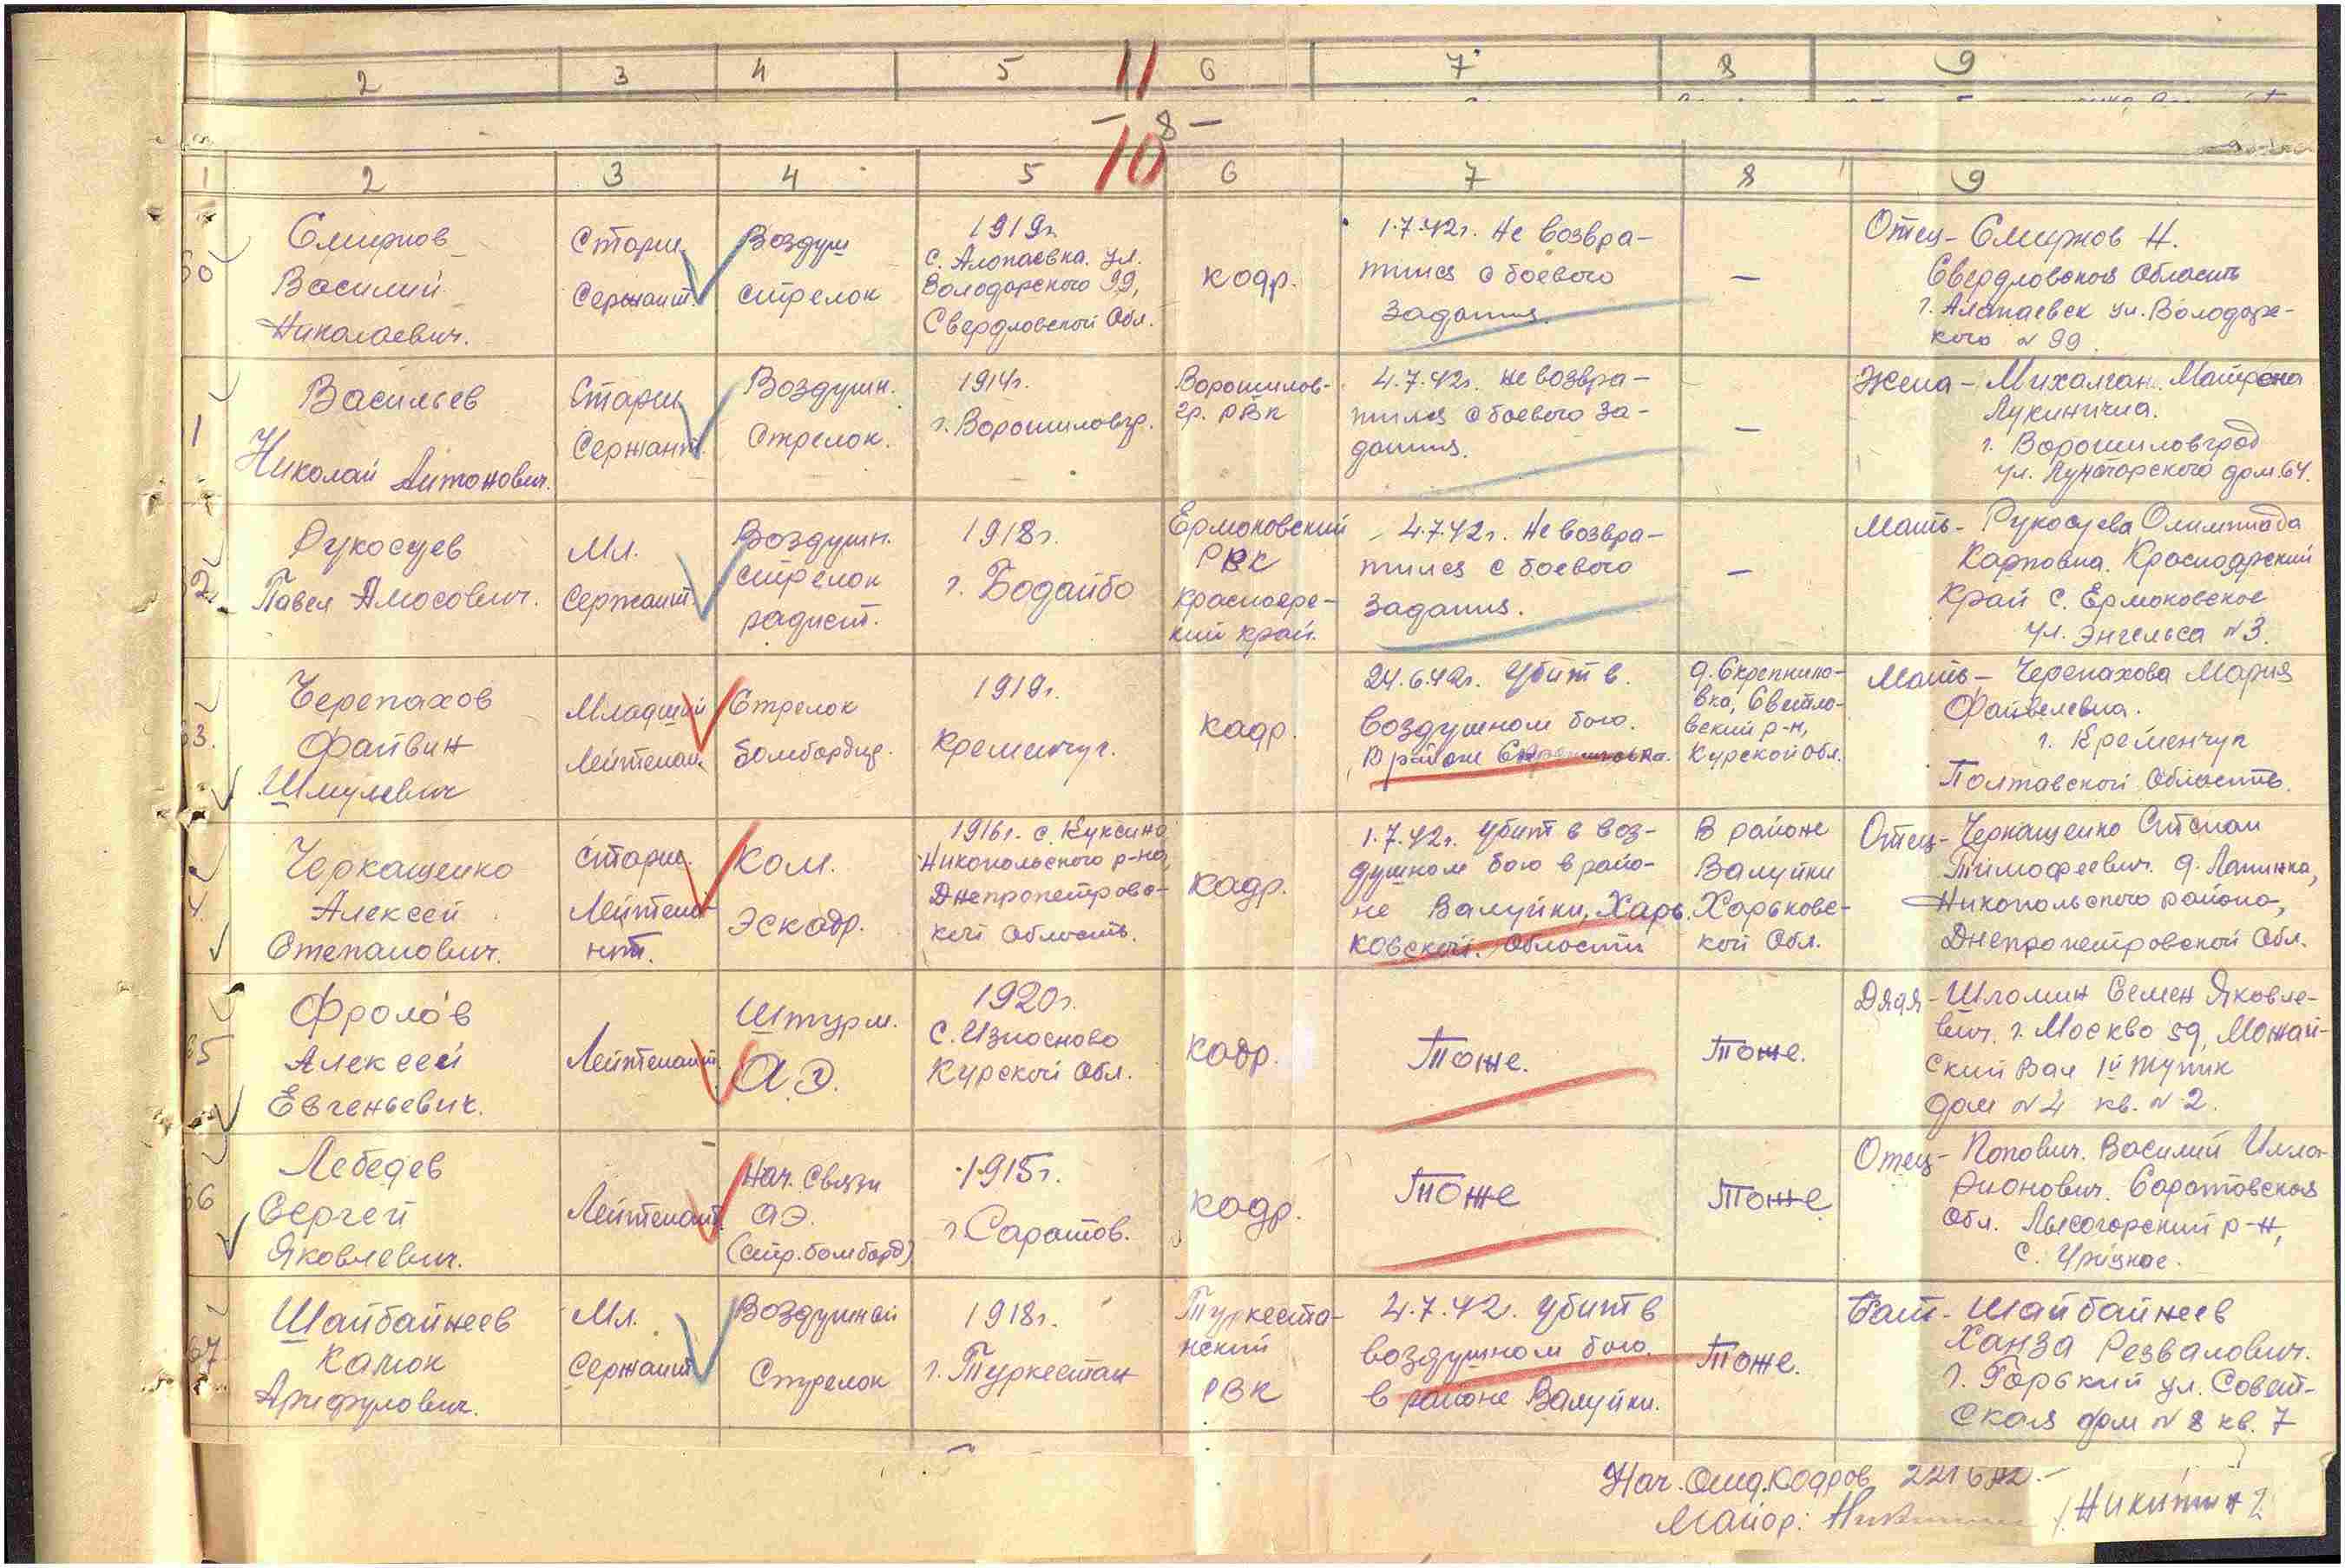 2 3 4 5 11 6 7 8 9
- 8 -
10
1 2 3 4 5 6 7 8 9
60
Смирнов
Василий
Николаевич.
Старш.
Сержант.
Воздуш
стрелок
1919г.
с. Алопаевка. ул.
Володарского 99,
Свердловской Обл.
кадр.
1.7.42г. Не возвра-
тился с боевого
задания.
—
Отец - Смирнов Н.
Свердловская Область
г. Алапаевск ул. Володарс-
кого № 99.
1
Васильев
Николай Антонович.
Старш.
Сержант.
Воздушн.
Стрелок.
1914г.
г. Ворошиловгр.
Ворошилов-
гр. РВК
4.7.42г. не возвра-
тился с боевого за-
дания.
—
Жена - Михалган. Матрена
Лукинична.
г. Ворошиловград
ул. Луначарского дом. 64.
2
Рукосуев
Павел Амосович.
Мл.
Сержант.
Воздушн.
стрелок
радист.
1918г.
г. Бодайбо
Ермоковский
РВК
Красноярс-
кий край.
4.7.42г. Не возвра-
тился с боевого
задания.
—
Мать - Рукосуева Олимпиада
Карповна. Красноярский
Край с. Ермоковское
ул. Энгельса №3.
63.
Черепахов
Файвин
Шмулевич
Младший
Лейтенант.
Стрелок
бомбардир.
1919г.
Кременчуг.
кадр.
24.6.42г. Убит в.
воздушном бою.
В районе
д. Скрепнило-
вка, Светло-
вский р-н,
Курской обл.
Мать - Черепахова Мария
Файвелевна.
г. Кременчуг
Полтавской Область.
4.
Черкащенко
Алексей
Степанович.
Старш.
Лейтена-
нт.
Ком.
эскадр.
1916г. с. Куксино
Никопольского р-на,
Днепропетровс-
кой Область.
кадр.
1.7.42г. Убит в воз-
душном бою в райо-
не Валуйки, Харь-
ковской Области
В районе
Валуйки
Харьковс-
кой Обл.
Отец - Черкащенко Степан
Тимофеевич. д. Лапинка,
Никопольского района,
Днепропетровской Обл.
65
Фролов
Алексей
Евгеньевич.
Лейтенант.
Штурм.
А.Э.
1920г.
с. Износково
Курской Обл.
кадр.
Тоже.
Тоже.
Дядя - Шломин Семен Яковле-
вич. г. Москва 59, Можай-
ский Вал 1й тупик
дом №4 кв. №2.
66
Лебедев
Сергей
Яковлевич.
Лейтенант.
Нач. Связи
АЭ.
(стр. бомбард)
1915г.
г. Саратов.
кадр.
Тоже
Тоже
Отец - Попович. Василий Илла-
рионович. Саратовская
Обл. Лысогорский р-н,
с. Урицкое.
67
Шайбайнеев
Камок
Арифулович.
Мл.
Сержант
Воздушный
Стрелок
1918г.
г. Туркестан
Туркеста-
нский
РВК
4.7.42г. Убит в
воздушном бою.
в районе Валуйки.
Тоже.
Брат - Шайбайнеев
Ханза Резвалович.
г. Горький ул. Совет-
ская дом №8 кв. 7
Нач. Отд. Кадров 221 бад.-
Майор: /Никитин/